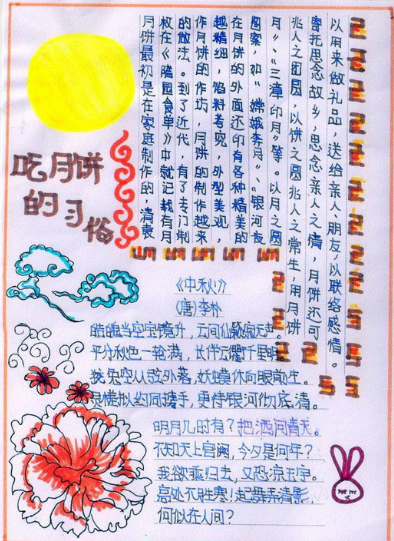 吃月饼
的习俗
月饼最初是在家庭制作的,清袁
枚在《随园食单》中就记载有月
的做法。到了近代,有了专门制
作月饼的作坊,月饼的制作越来
越精细,馅料考究,外型美观,
在月饼的外面还印有各种精美的
图案,如“嫦娥奔月”、“银河夜
月”、“三潭印月”等。以月之圆
兆人之团圆,以饼之圆兆人之常生,用月饼
寄托思念故乡,思念亲人之情,月饼还可
以用来做礼品,送给亲人、朋友以联络感情。
《中秋》
(唐)李朴
皓魄当空宝镜升,云间仙籁寂无声。
平分秋色一轮满,长伴云衢千里明。
狡兔空从弦外落,妖蟆休向眼前生。
灵槎拟约同携手,更待银河彻底清。
明月几时有?把酒问青天。
不知天上宫阙,今夕是何年?
我欲乘归去,又恐凉玉宇。
高处不胜寒!起舞弄清影,
何似在人间?